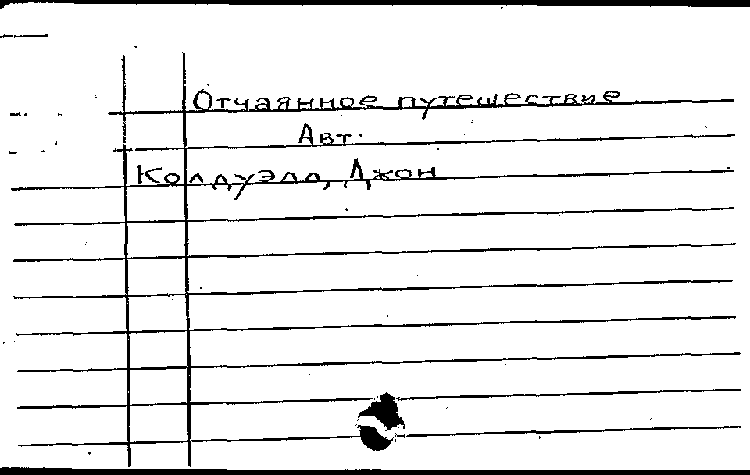 Отчаянное путешествие
Авт.
Колдуэлл, Джон